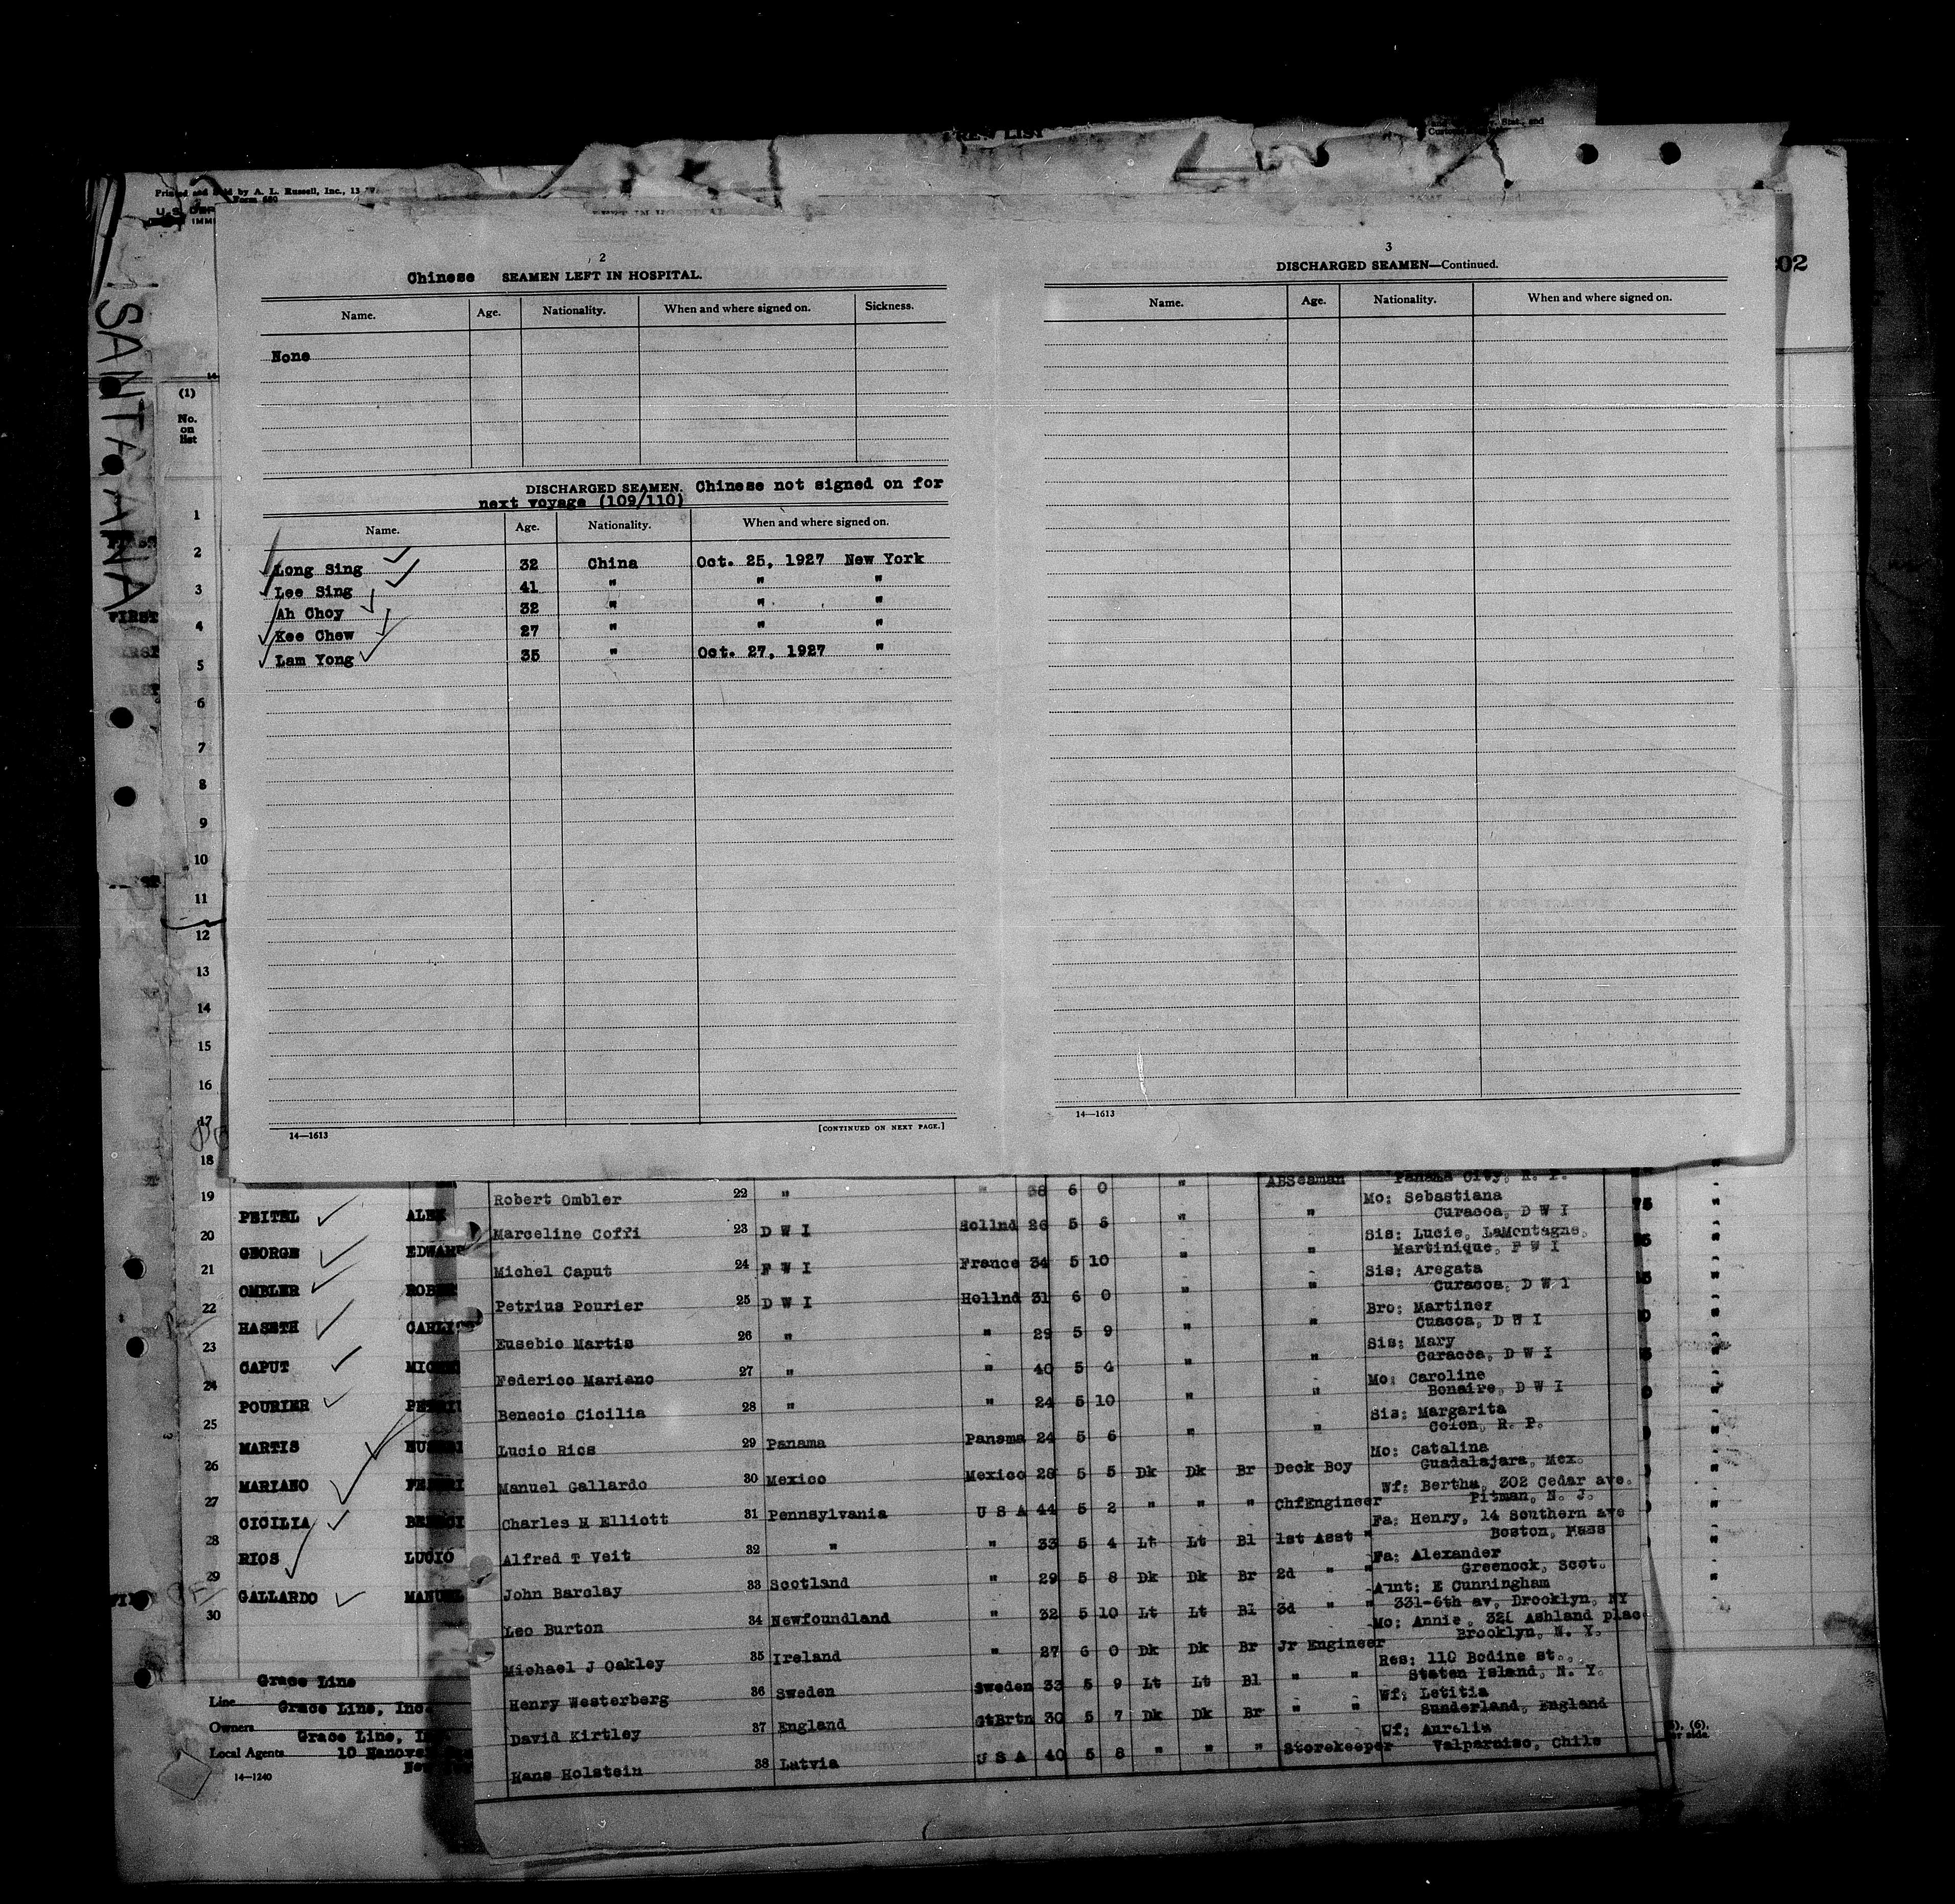 CREW LIST
Printed and Sold by A. L. Russell, Inc., 13
Form 680
U. S. DEP
IMMI
SANTA ANA
202
2
Chinese SEAMEN LEFT IN HOSPITAL.
Name. Age. Nationality. When and where signed on. Sickness.
None
DISCHARGED SEAMEN. Chinese not signed on for
next voyage (109/110)
Name. Age. Nationality. When and where signed on.
Long Sing 32 China Oct. 25, 1927 New York
Lee Sing 41 " " "
Ah Choy 32 " " "
Kee Chew 27 " " "
Lam Yong 35 " Oct. 27, 1927 "
14—1613 [CONTINUED ON NEXT PAGE.]
3
DISCHARGED SEAMEN—Continued.
Name. Age. Nationality. When and where signed on.
14—1613
(1)
No.
on
list
1
2
3
4
5
6
7
8
9
10
11
12
13
14
15
16
17
18
19
20
21
22
23
24
25
26
27
28
29
30
FIRST
PEITEL ALEX
GEORGE EDWARD
OMBLER ROBER
HASETH CARLI
CAPUT MICH
POURIER PETRI
MARTIS EUSEBI
MARIANO FEDERI
CICILIA BENECI
RIOS LUCIO
GALLARDO MANUEL
Grace Line
Line
Grace Line, Inc.
Owners
Grace Line, In
Local Agents 10 Hanover
New
14—1240
ABSeaman Panama City, R. P.
Robert Ombler 22 " " 38 6 0 "
Mo: Sebastiana
Marceline Coffi 23 D W I Hollnd 26 5 5 " " Curacoa, D W I
Sis: Lucie, LaMontagne,
Michel Caput 24 F W I France 34 5 10 " " Martinique, F W I
Sis: Aregata
Petrius Pourier 25 D W I Hollnd 31 6 0 " " Curacoa, D W I
Bro: Martinez
Eusebio Martis 26 " " 29 5 9 " " Cuacoa, D W I
Sis: Mary
Federico Mariano 27 " " 40 5 4 " " Curacoa, D W I
Mo: Caroline
Benecio Cicilia 28 " " 24 5 10 " " Bonaire, D W I
Sis: Margarita
Lucio Rios 29 Panama Panama 24 5 6 " Colon, R. P.
Mo: Catalina
Manuel Gallardo 30 Mexico Mexico 28 5 5 Dk Dk Br Deck Boy Guadalajara, Mex.
Wf: Bertha, 302 Cedar ave.
Charles H Elliott 31 Pennsylvania U S A 44 5 2 " " " ChfEngineer Pitman, N. J.
Fa: Henry, 14 Southern ave
Alfred T Veit 32 " " 33 5 4 Lt Lt Bl 1st Asst " Boston, Mass
Fa: Alexander
John Barclay 33 Scotland " 29 5 8 Dk Dk Br 2d " " Greenock, Scot.
Aunt: E Cunningham
Leo Burton 34 Newfoundland " 32 5 10 Lt Lt Bl 3d " " 331-6th av, Brooklyn, NY
Mo: Annie, Ashland plac
Michael J Oakley 35 Ireland " 27 6 0 Dk Dk Br Jr Engineer Brooklyn, N. Y.
Res: 110 Bodine st.,
Henry Westerberg 36 Sweden Sweden 33 5 9 Lt Lt Bl " " Staten Island, N. Y.
Wf: Letitia
David Kirtley 37 England GtBrtn 30 5 7 Dk Dk Br " " Sunderland, England
Wf: Aurelia
Hans Holstein 38 Latvia U S A 40 5 8 " " " Storekeeper Valparaiso, Chile